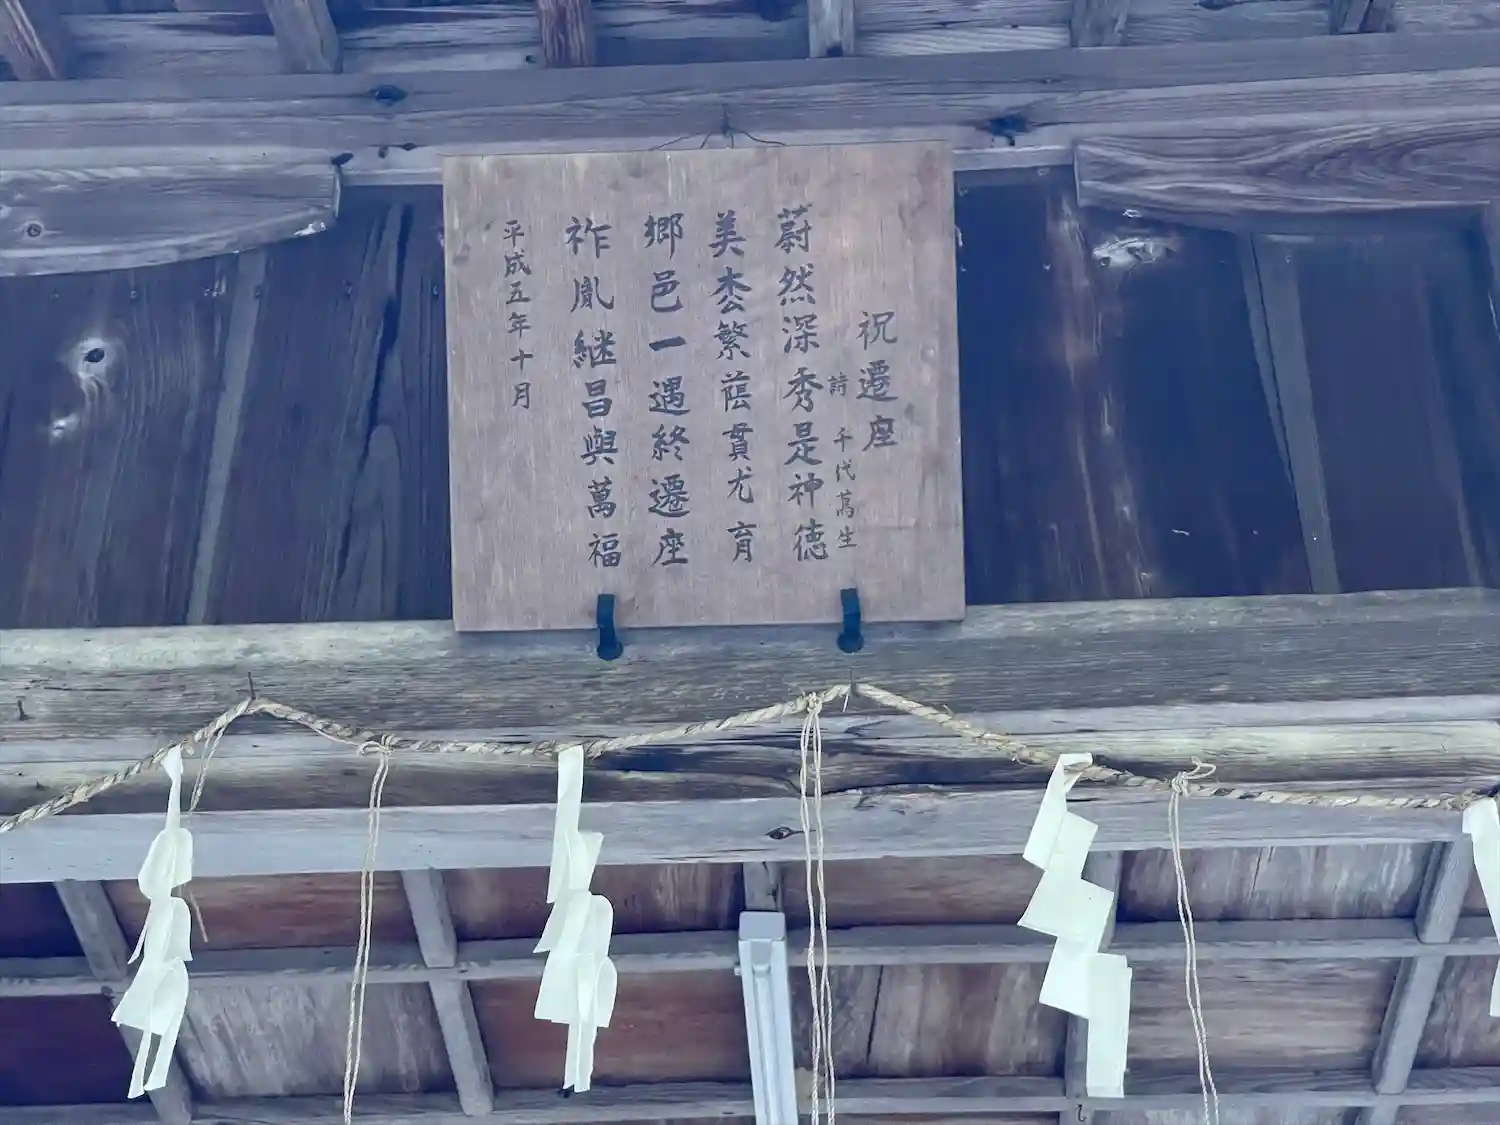 祝遷座
詩 千代萬生
蔚然深秀是神徳
美枩繁蔭貫尤育
郷邑一遇終遷座
祚胤継昌與萬福
平成五年十月